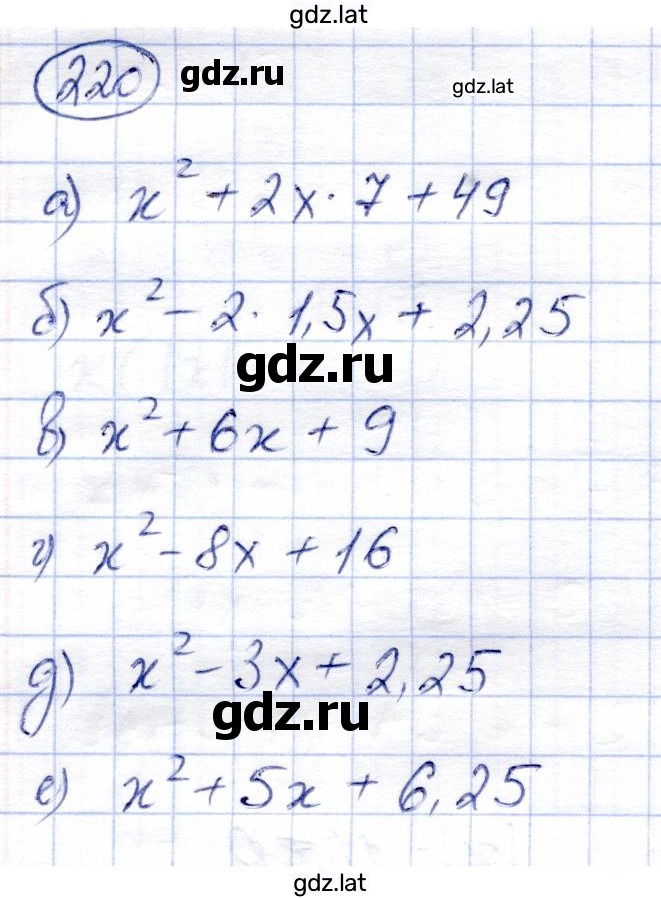 gdz.lat
220 gdz.ru gdz.lat
а) x² + 2x · 7 + 49
б) x² - 2 · 1,5x + 2,25
gdz.ru
в) x² + 6x + 9
г) x² - 8x + 16
д) x² - 3x + 2,25
gdz.ru
е) x² + 5x + 6,25
gdz.lat